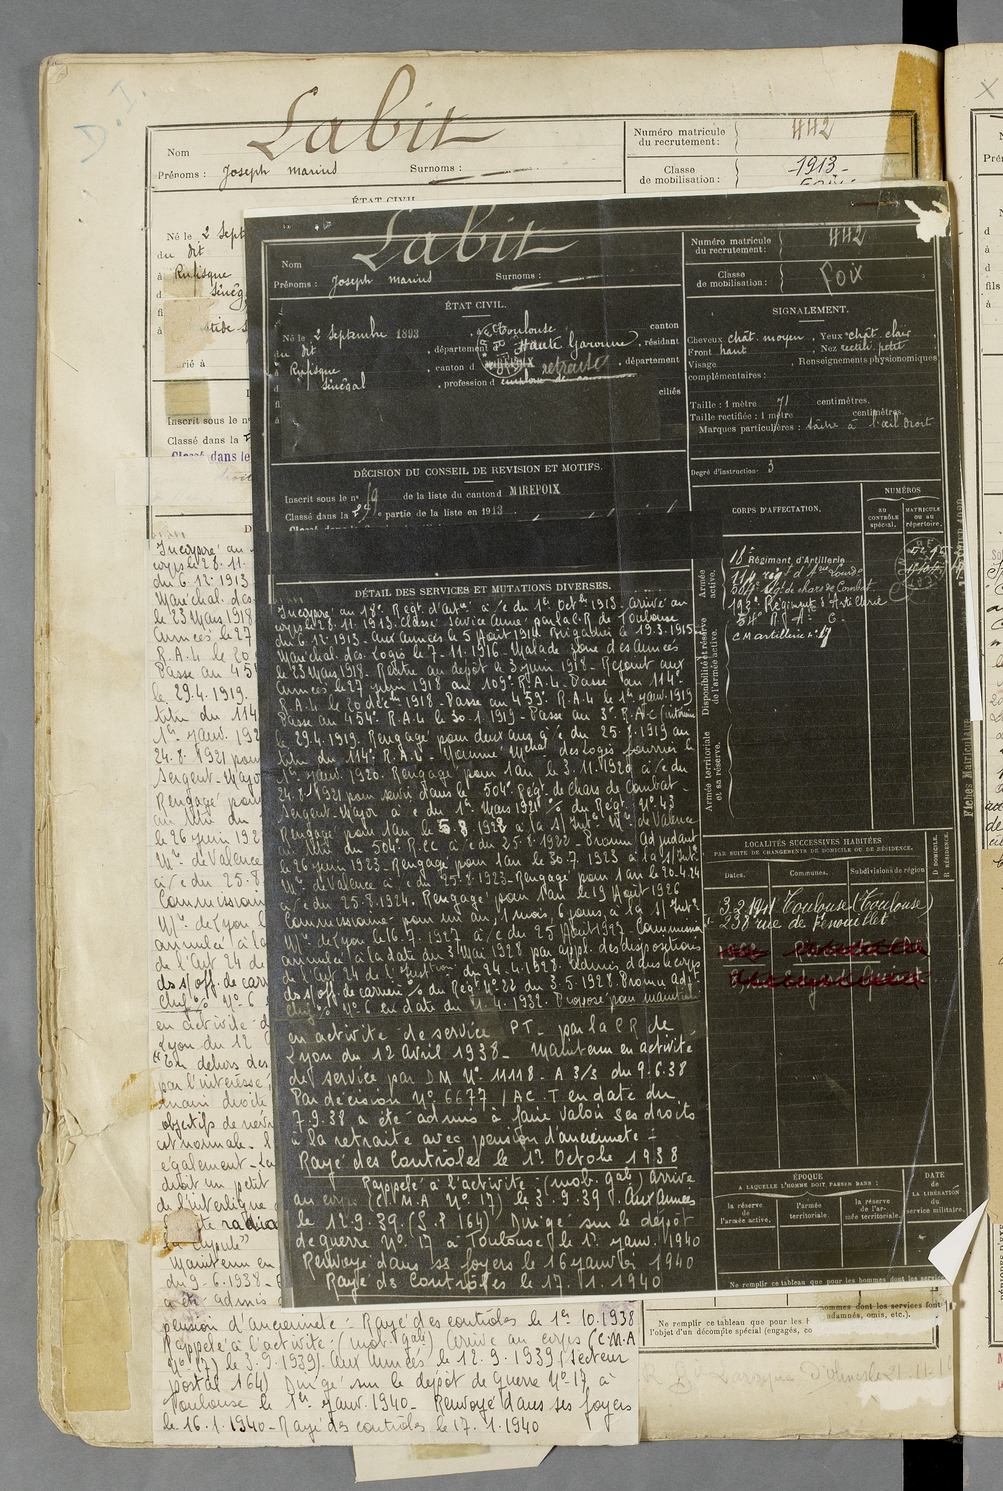 D.I.
Labit
Nom
Prénoms : Joseph Marius Surnoms :
Numéro matricule du recrutement : 442
Classe de mobilisation : 1913
ÉTAT CIVIL
Né le 2 Sept
du dit
à Rufisque
Sénég
Inscrit sous le n°
Classé dans la
Classé dans le
Incorporé au
corps le 28.11.
du 6.12.1913
Maréchal des
le 23 Mars 1918
Armées le 27
R.A.L. le 20
Passe au 45
le 29.4.1919.
titre du 114
1er janv. 192
24.8.1921 pour
Sergent-Major
Rengagé pour
au titre du
le 26 juin 192
Mre de Valence
à/c du 25.8
Commission
Mre de Lyon l
annulée à la
de l'art 24 de
des s/off. de carr
chef % N° 6
en activité d
Lyon du 12
"En dehors des
par l'intéressé,
main droite
objectifs de névr
est normale.
également - La
droit un petit
de l'interligne
radia
Maintenu en
du 9-6-1938 -
a été admis
pension d'ancienneté - Rayé des contrôles le 1er 10.1938
Rappelé à l'activité : (mob. gale) arrivé au corps (C.M.A
N° 17) le 3.9.1939). Aux Armées le 12.9.1939 (Secteur
postal 164) Dirigé sur le dépôt de Guerre N° 17 à
Toulouse le 1er janv. 1940 - Renvoyé dans ses foyers
le 16.1.1940 - Rayé des contrôles le 17.1.1940
Labit
Nom
Prénoms : Joseph Marius Surnoms :
Numéro matricule du recrutement : 442
Classe de mobilisation : Foix
ÉTAT CIVIL.
Né le 2 Septembre 1893, à Toulouse, canton
du dit, département Haute Garonne, résidant
à Rufisque, canton d MIREPOIX, département
d Sénégal, profession d retraité
ciliés
SIGNALEMENT.
Cheveux chât. moyen, Yeux chât. clair
Front haut, Nez rectil. petit
Visage , Renseignements physionomiques
complémentaires :
Taille : 1 mètre 71 centimètres.
Taille rectifiée : 1 mètre centimètres.
Marques particulières : taire à l'œil droit
Degré d'instruction : 3
DÉCISION DU CONSEIL DE REVISION ET MOTIFS.
Inscrit sous le n° 19 de la liste du canton d MIREPOIX
Classé dans la 2e partie de la liste en 1913
DÉTAIL DES SERVICES ET MUTATIONS DIVERSES.
Incorporé au 18e Régt d'Artie à/c du 1er Octbre 1913. Arrivé au
corps le 28.11.1913. Classé service armé par la C.R de Toulouse
du 6.12.1913. Aux Armées le 5 Août 1914. Brigadier le 19.3.1915
Maréchal des Logis le 7.11.1916. Malade zone des Armées
le 23 Mars 1918. Rentré au dépôt le 3 juin 1918. Rejoint aux
Armées le 27 juin 1918 au 109e R.A.L. Passe au 114e
R.A.L. le 20 décbre 1918. Passe au 459e R.A.L. le 1er janv. 1919
Passe au 454e R.A.L le 30.1.1919. Passe au 3e R.A.C
le 29.4.1919. Rengagé pour deux ans à/c du 25.8.1919 au
titre du 114e R.A.L. Nommé Mchal des Logis fourrier le
1er janv. 1920. Rengagé pour 1 an le 3.11.1920 à/c du
24.8.1921 pour servir dans le 504e Régt de Chars de Combat
Sergent-Major à/c du 1er Mars 1921 % du Régt N° 43
Rengagé pour 1 an le 5.8.1922 à la s/Intce Mre de Valence
au titre du 504e R.CC à/c du 25.8.1922. Promu Adjudant
le 26 juin 1923. Rengagé pour 1 an le 30.7.1923 à la s/Intce
Mre d'Valence à/c du 25.8.1923. Rengagé pour 1 an le 20.4.24
à/c du 25.8.1924. Rengagé pour 1 an le 19 Août 1926
Commissionné pour un an, 1 mois, 6 jours, à la s/Intce
Mre de Lyon le 16.7.1927 à/c du 25 Août 1927. Commission
annulée à la date du 3 Mai 1928 par appl. des dispositions
de l'Art 24 de l'Instion du 24.4.1928. Admis dans le corps
des s/off. de carrière % du Régt N° 22 du 3.5.1928. Promu adjt
chef % N° 6 en date du 11.4.1932. Proposé pour maintien
en activité de service PT - par la CR de
Lyon du 12 Avril 1938 - Maintenu en activité
de service par DM N° 11118-A 3/3 du 9.6.38
Par décision N° 6677/AC.T en date du
7.9.38 a été admis à faire valoir ses droits
à la retraite avec pension d'ancienneté -
Rayé des Contrôles le 1er Octobre 1938
Rappelé à l'activité : (mob. gale) arrivé
au corps (C.M.A N° 17) le 3.9.39. Aux Armées
le 12.9.39 (S.P 164). Dirigé sur le dépôt
de guerre N° 17 à Toulouse le 1er janv. 1940
Renvoyé dans ses foyers le 16 janvier 1940
Rayé des Contrôles le 17.1.1940
CORPS D'AFFECTATION.
NUMÉROS
AU CONTRÔLE spécial.
MATRICULE OU AU répertoire.
Armée active.
18e Régiment d'Artillerie
114e régt d'Arie Lourde
504e Régt de chars de Combat
192e Régiment d'Artillerie
54e R.A. C.
C M artillerie n° 17
Disponibilité et réserve de l'armée active.
Armée territoriale et sa réserve.
LOCALITÉS SUCCESSIVES HABITÉES
PAR SUITE DE CHANGEMENTS DE DOMICILE OU DE RÉSIDENCE.
Dates. Communes. Subdivisions de région
D DOMICILE. R RÉSIDENCE.
3.2.1941 Toulouse (Toulouse)
238 rue de Fenouillet
ÉPOQUE
A LAQUELLE L'HOMME DOIT PASSER DANS :
la réserve de l'armée active.
l'armée territoriale.
la réserve de l'armée territoriale.
DATE de LA LIBÉRATION du service militaire.
Ne remplir ce tableau que pour les hommes dont les services
ommes dont les services font
ndamnés, omis, etc.).
Ne remplir ce tableau que pour les h
l'objet d'un décompte spécial (engagés, co
Fiches Matricules